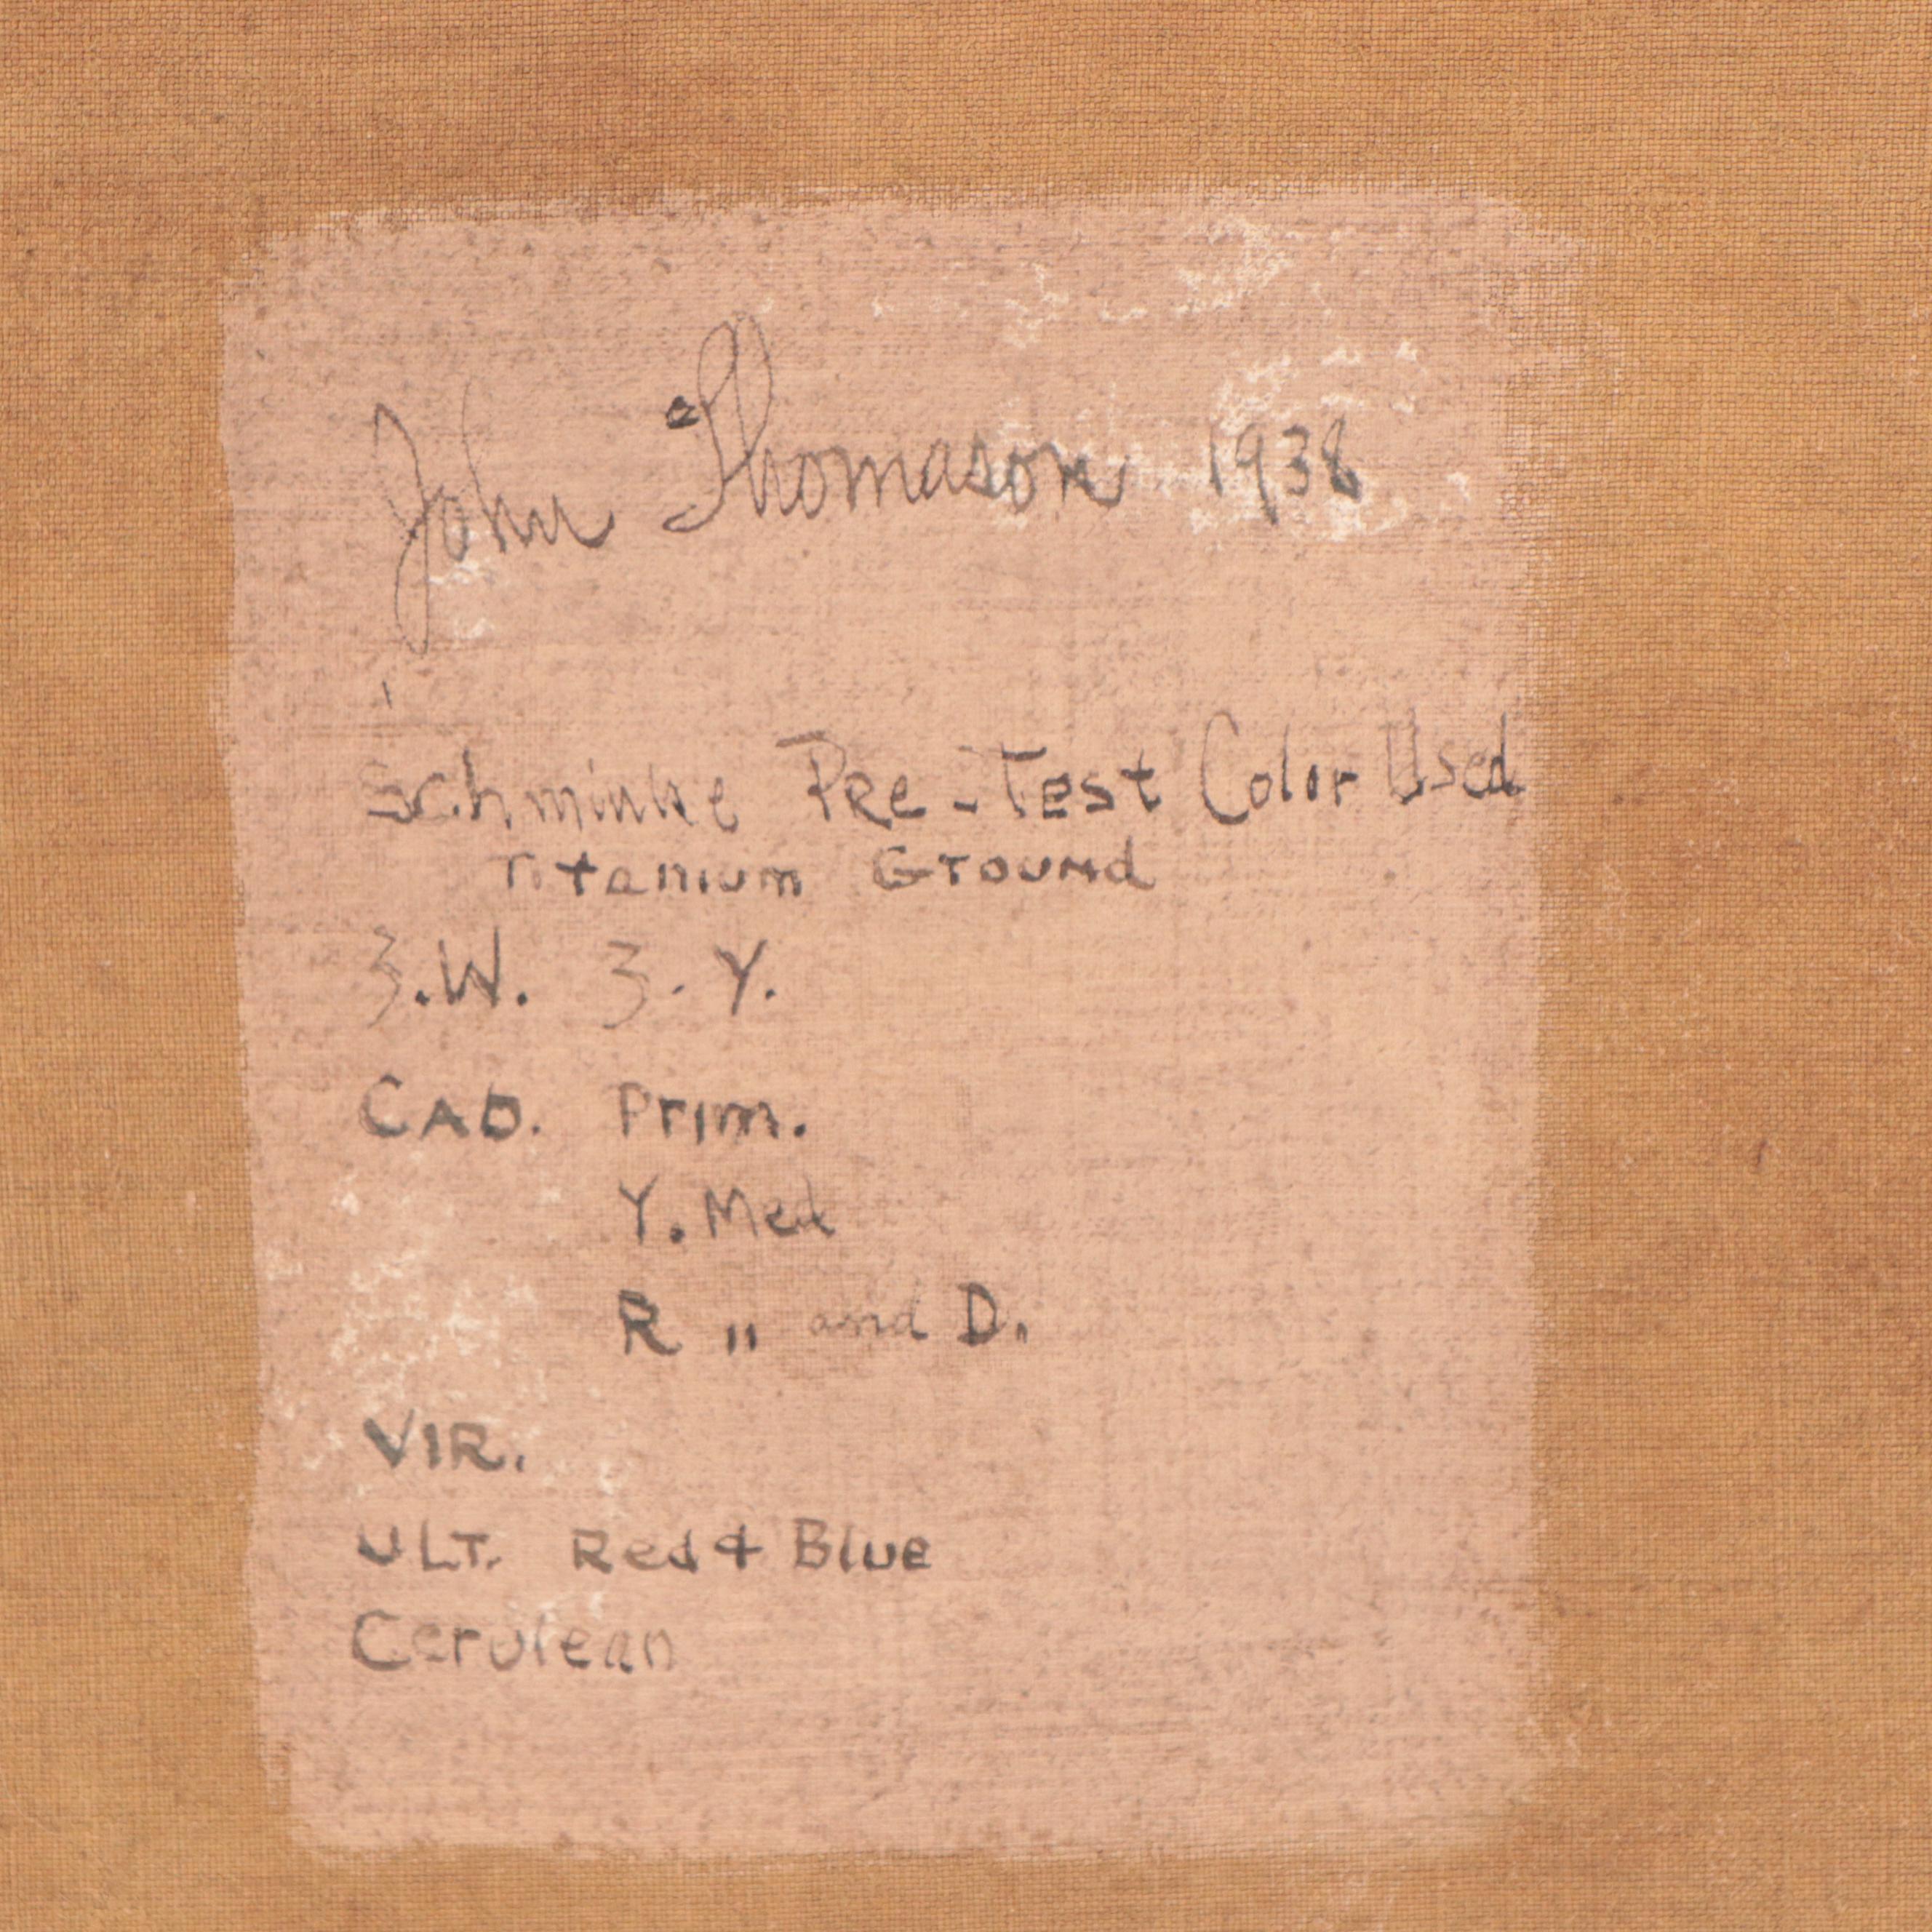 John Thomason 1938
Schminke Pre-Test Color Used
Titanium Ground
Z.W. Z.Y.
CAD. Prim.
Y. Med
R " and D.
VIR.
ULT. Red & Blue
Cerulean